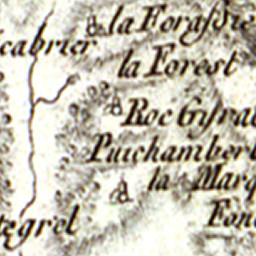 la Forassie
cabrier
la Forest
Roc
Puichambert
la Marq
Fon
tegrel